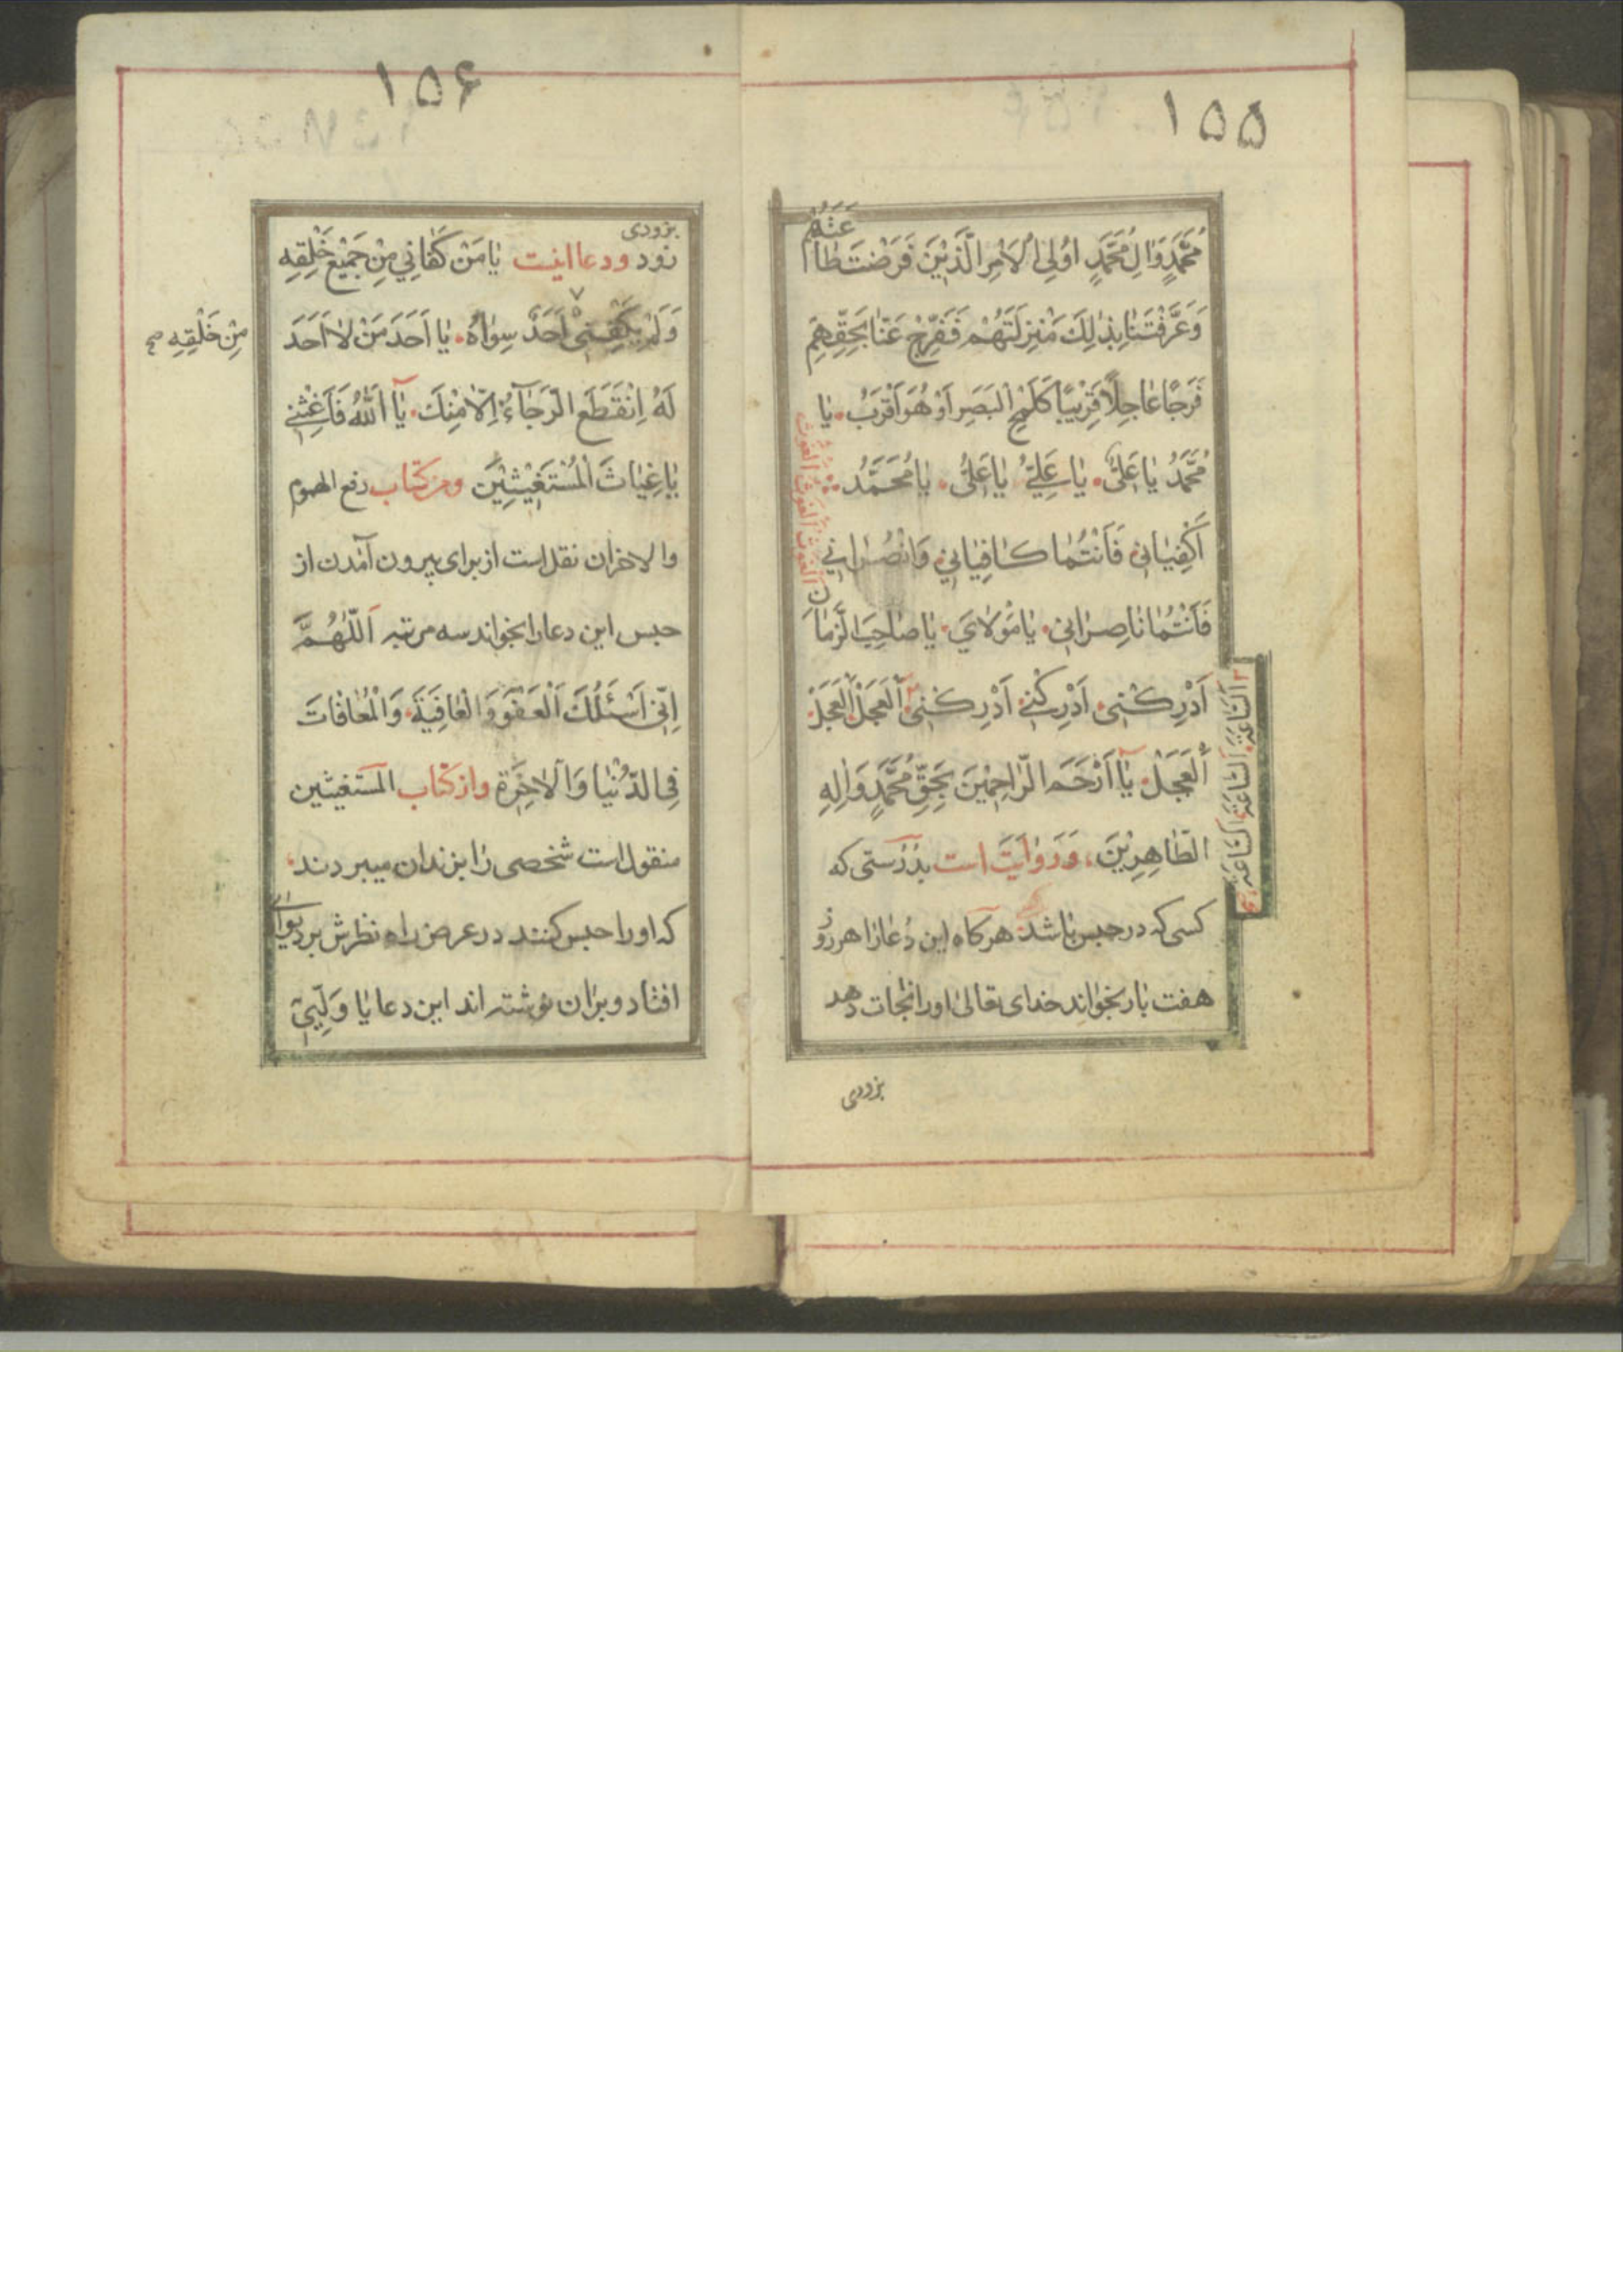 ١٥٥
عَتَهُمْ
مُحَمَّدٍ وَاٰلِ مُحَمَّدٍ اُولِي الْاَمْرِ الَّذِيْنَ فَرَضْتَ طٰا
وَعَرَّفْتَنٰا بِذٰلِكَ مَنْزِلَتَهُمْ فَفَرِّجْ عَنّٰا بِحَقِّهِمْ
فَرَجًا عٰاجِلًا قَرِيْبًا كَلَمْحِ الْبَصَرِ اَوْ هُوَ اَقْرَبُ يٰا
مُحَمَّدُ يٰا عَلِيُّ يٰا عَلِيُّ يٰا عَلِيُّ يٰا مُحَمَّدُ
اَكْفِيٰانِي فَاَنْتُمٰا كٰافِيٰانِي وَانْصُرٰانِي
فَاَنْتُمٰا نٰاصِرٰانِي يٰا مَوْلٰايَ يٰا صٰاحِبَ الزَّمٰا
نِ الْغَوْثَ الْغَوْثَ الْغَوْثَ
اَدْرِكْنِي اَدْرِكْنِي اَدْرِكْنِي اَلْعَجَلْ اَلْعَجَلْ
السّٰاعَةَ السّٰاعَةَ السّٰاعَةَ
اَلْعَجَلْ يٰا اَرْحَمَ الرّٰاحِمِيْنَ بِحَقِّ مُحَمَّدٍ وَاٰلِهِ
الطّٰاهِرِيْنَ وَرَوٰايَتَ است بدرستی که
کسی که در حبس باشد هرکاه این دعا را هر رو
هفت بار بخواند خدای تعالی اورا نجات دهد
بزودی
١٥۶
بزودی
زود ودعا اینست يٰا مَنْ كَفٰانِي مِنْ جَمِيْعِ خَلْقِهِ
وَلَمْ يَكْفِنِي اَحَدٌ سِوٰاهُ يٰا اَحَدَ مَنْ لٰا اَحَدَ
مِنْ خَلْقِهِ صح
لَهُ اِنْقَطَعَ الرَّجٰآءُ اِلّٰا مِنْكَ يٰا اَللّٰهُ فَاَغِثْنِي
يٰا غِيٰاثَ الْمُسْتَغِيْثِيْنَ ومن کتاب رفع الهموم
والاحزان نقل است از برای بیرون آمدن از
حبس این دعا را بخواند سه مرتبه اَللّٰهُمَّ
اِنِّي اَسْئَلُكَ الْعَفْوَ وَالْعٰافِيَةَ وَالْمُعٰافٰاتَ
فِي الدُّنْيٰا وَالْاٰخِرَةِ واز کتاب المستغیثین
منقول است شخصی را بزندان میبردند
که اورا حبس کنند در عرض راه نظرش بر دیوا
افتاد وبران نوشته اند این دعا یٰا وَلِيِّي